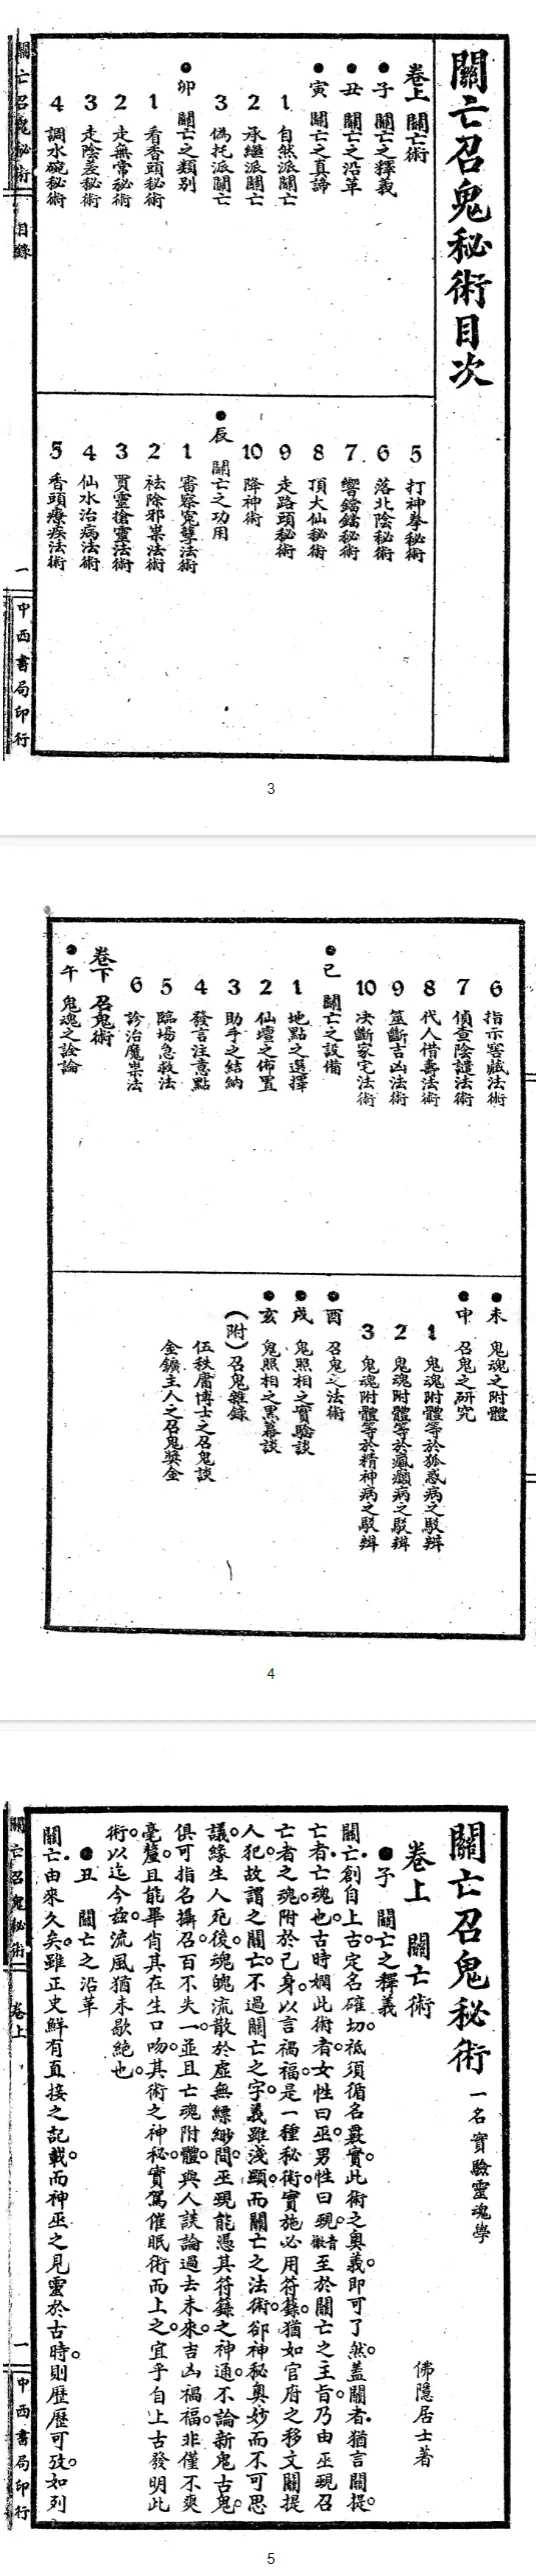 關亡召鬼秘術目次
卷上 關亡術
●子 關亡之釋義
●丑 關亡之沿革
●寅 關亡之真諦
1 自然派關亡
2 承繼派關亡
3 偽托派關亡
●卯 關亡之類別
1 看香頭秘術
2 走無常秘術
3 走陰差秘術
4 調水碗秘術
5 打神拳秘術
6 落北陰秘術
7 響鐺鐺秘術
8 頂大仙秘術
9 走路頭秘術
10 降神術
●辰 關亡之功用
1 審察冤孽法術
2 祛除邪祟法術
3 買靈搶靈法術
4 仙水治病法術
5 香頭療疾法術
關亡召鬼秘術 目錄 一 中西書局印行
3
6 指示窖藏法術
7 偵查陰譴法術
8 代人借壽法術
9 筮斷吉凶法術
10 决斷家宅法術
●巳 關亡之設備
1 地點之選擇
2 仙壇之佈置
3 助手之結納
4 發言注意點
5 臨場急救法
6 診治魔祟法
卷下 召鬼術
●午 鬼魂之詮論
●未 鬼魂之附體
●申 召鬼之研究
1 鬼魂附體等於狐惑病之駁辨
2 鬼魂附體等於瘋癲病之駁辨
3 鬼魂附體等於精神病之駁辨
●酉 召鬼之法術
●戌 鬼照相之實驗談
●亥 鬼照相之黑幕談
(附)召鬼雜錄
伍秩庸博士之召鬼談
金鑛主人之召鬼獎金
4
關亡召鬼秘術 一名實驗靈魂學
佛隱居士著
卷上 關亡術
●子 關亡之釋義
關亡創自上古。定名確切。祗須循名覈實。此術之奧義。即可了然。蓋關者。猶言關提。
亡者。亡魂也。古時嫻此術者。女性曰巫。男性曰覡。音檄至於關亡之主旨。乃由巫覡召
亡者之魂。附於己身。以言禍福。是一種秘術。實施必用符籙。猶如官府之移文關提
人犯。故謂之關亡。不過關亡之字義雖淺顯。而關亡之法術。卻神秘奧妙而不可思
議。緣生人死後。魂魄流散於虛無縹緲間。巫覡能憑其符籙之神通。不論新鬼古鬼。
俱可指名攝召。百不失一。並且亡魂附體。與人談論過去未來。吉凶禍福。非僅不爽
毫釐。且能畢肖其在生口吻。其術之神秘。實駕催眠術而上之。宜乎自上古發明此
術。以迄今茲。流風猶未歇絕也。
●丑 關亡之沿革
關亡由來久矣。雖正史鮮有直接之記載。而神巫之見靈於古時。則歷歷可攷。如列
關亡召鬼秘術 卷上 一 中西書局印行
5